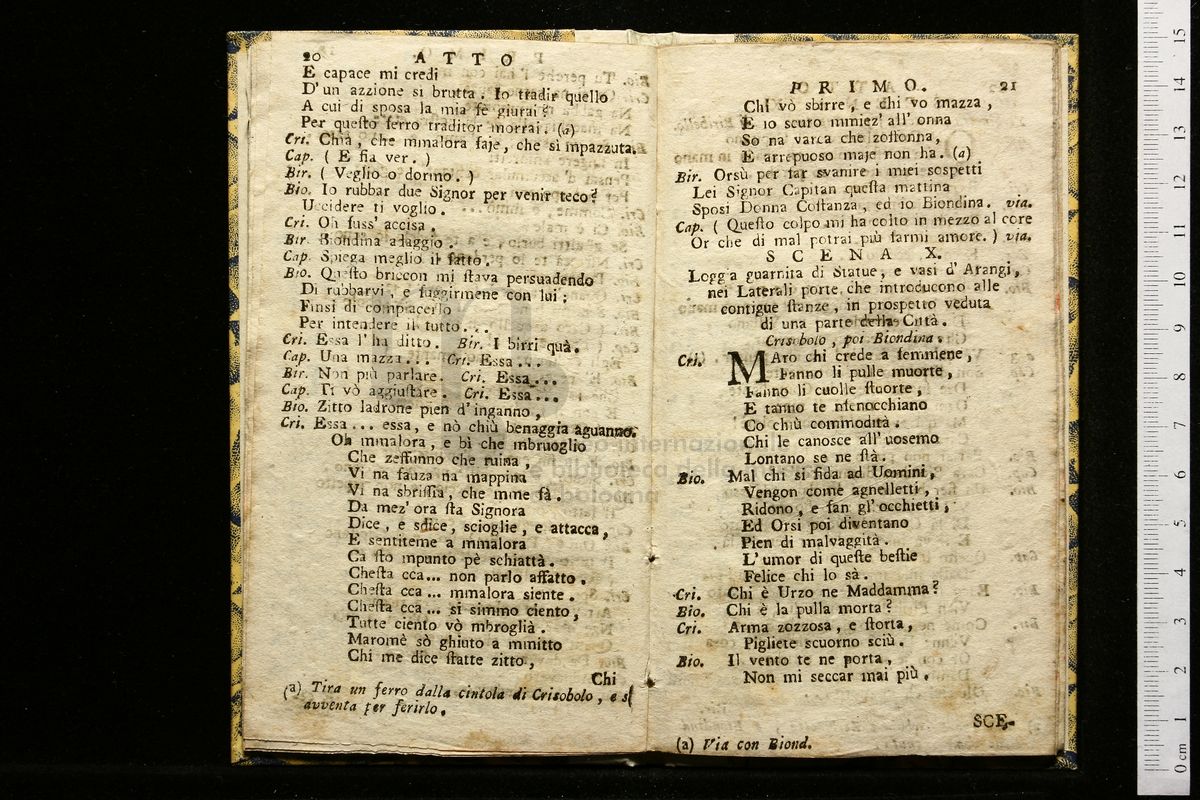 20 ATTO
E capace mi credi
D'un azzione si brutta. Io tradir quello
A cui di sposa la mia fe giurai?
Per questo ferro traditor morrai. (a)
Cri. Chià, che mmalora faje, che si mpazzuta.
Cap. ( E fia ver. )
Bir. ( Veglio o dormo. )
Bio. Io rubbar due Signor per venir teco?
Uccidere ti voglio.
Cri. Oh fuss' accisa.
Bir. Biondina adaggio.
Cap. Spiega meglio il fatto.
Bio. Questo briccon mi stava persuadendo
Di rubbarvi, e fuggirmene con lui;
Finsi di compiacerlo
Per intendere il tutto...
Cri. Essa l'ha ditto. Bir. I birri quà.
Cap. Una mazza... Cri. Essa...
Bir. Non più parlare. Cri. Essa...
Cap. Ti vò aggiustare. Cri. Essa...
Bio. Zitto ladrone pien d'inganno,
Cri. Essa... essa, e nò chiù benaggia aguanno.
Oh mmalora, e bì che mbruoglio
Che zeffunno che ruina,
Vi na fauza na mappina
Vi na sbrissia, che mme fà.
Da mez' ora sta Signora
Dice, e sdice, scioglie, e attacca,
E sentiteme a mmalora
Ca sto mpunto pè schiattà.
Chesta cca... non parlo affatto.
Chesta cca... mmalora siente.
Chesta cca... si simmo ciento,
Tutte ciento vò mbroglià.
Maromè sò ghiuto a mmitto
Chi me dice statte zitto,
Chi
(a) Tira un ferro dalla cintola di Crisobolo, e si
avventa per ferirlo.
PRIMO. 21
Chi vò sbirre, e chi vo mazza,
E io scuro mmiez' all' onna
So na varca che zoffonna,
E arrepuoso maje non ha. (a)
Bir. Orsù per far svanire i miei sospetti
Lei Signor Capitan questa mattina
Sposi Donna Costanza, ed io Biondina. via.
Cap. ( Questo colpo mi ha colto in mezzo al core
Or che di mal potrai più farmi amore. ) via.
SCENA X.
Logg a guarnita di Statue, e vasi d' Arangi,
nei Laterali porte, che introducono alle
contigue stanze, in prospetto veduta
di una parte della Città.
Crisobolo, poi Biondina.
Cri. MAro chi crede a femmene,
Fanno li pulle muorte,
Fanno li cuolle stuorte,
E tanno te nfenocchiano
Co chiù commodità.
Chi le canosce all' uosemo
Lontano se ne stà.
Bio. Mal chi si fida ad Uomini,
Vengon come agnelletti,
Ridono, e fan gl' occhietti,
Ed Orsi poi diventano
Pien di malvaggità.
L' umor di queste bestie
Felice chi lo sà.
Cri. Chi è Urzo ne Maddamma?
Bio. Chi è la pulla morta?
Cri. Arma zozzosa, e storta,
Pigliete scuorno sciù.
Bio. Il vento te ne porta,
Non mi seccar mai più.
SCE-
(a) Via con Biond.
0 cm 1 2 3 4 5 6 7 8 9 10 11 12 13 14 15